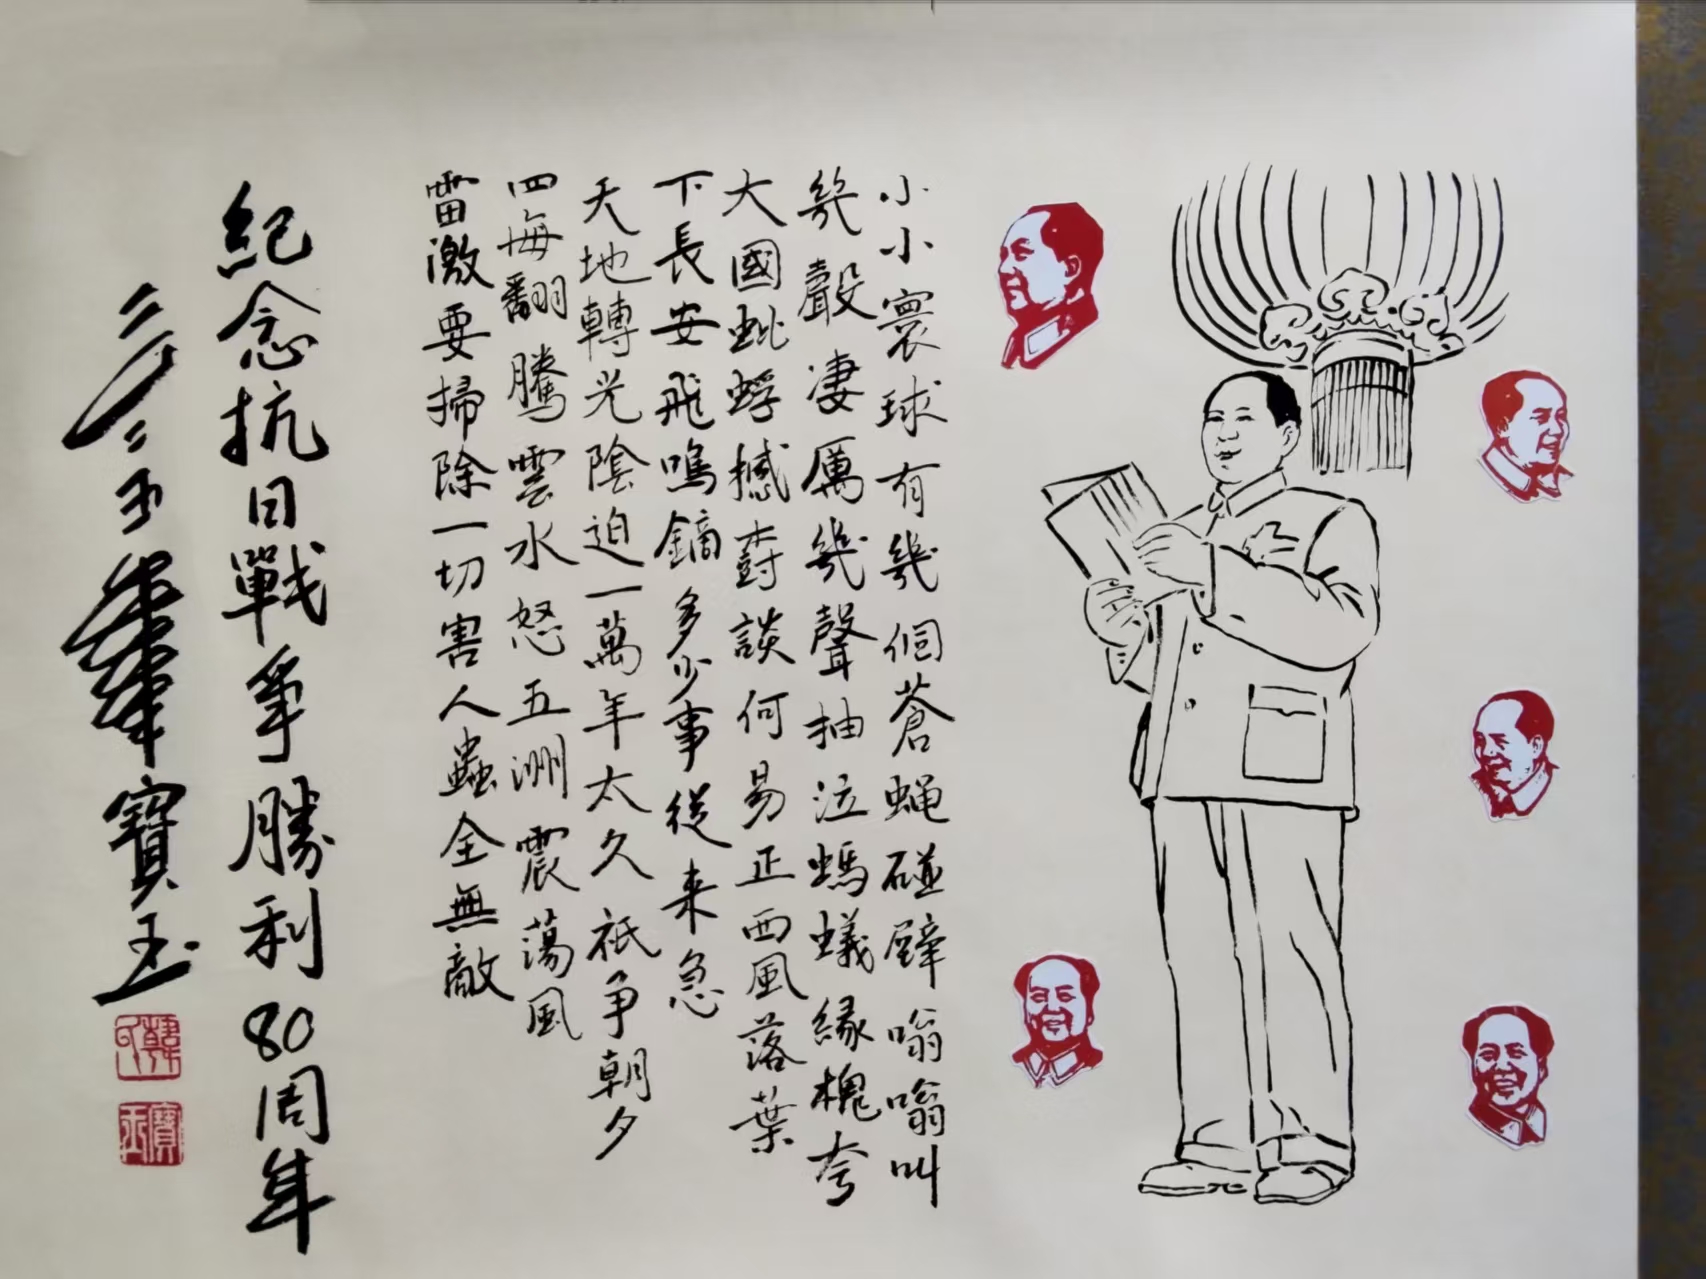 小小寰球有幾個蒼蝇碰壁嗡嗡叫
幾聲凄厲幾聲抽泣螞蟻緣槐夸
大國蚍蜉撼樹談何易正西風落葉
下長安飛鳴鏑多少事從来急
天地轉光陰迫一萬年太久祇争朝夕
四海翻騰雲水怒五洲震蕩風
雷激要掃除一切害人蟲全無敵
紀念抗日戰爭勝利80周年
二〇二五年 寶玉
韓印
寶玉